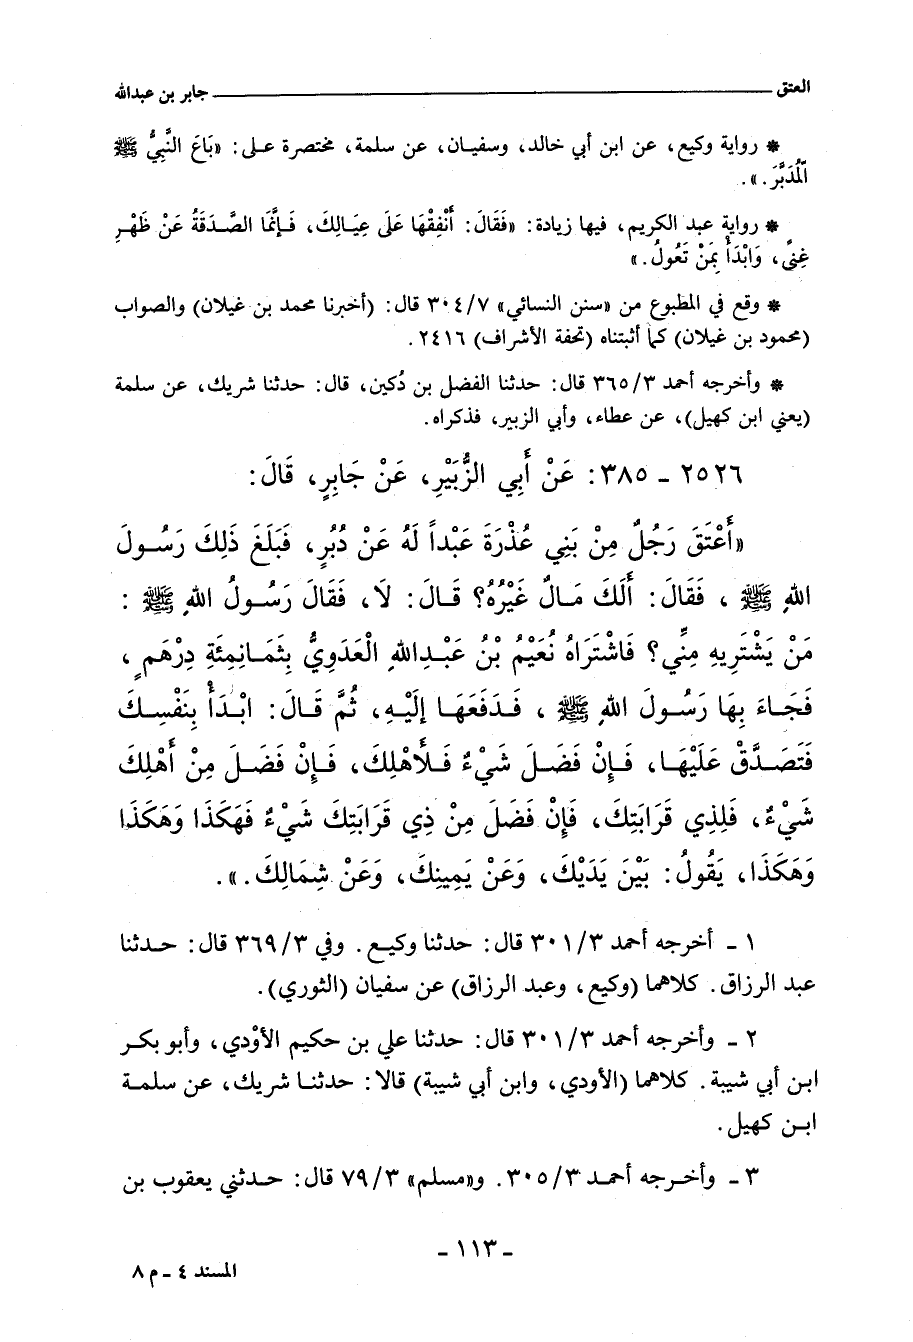 العتق ــــــ جابر بن عبدالله
* رواية وكيع، عن ابن أبي خالد، وسفيان، عن سلمة، مختصرة على: «بَاعَ النَّبِيُّ ﷺ
الْمُدَبَّرَ.».
* رواية عبد الكريم، فيها زيادة: «فَقَالَ: أَنْفِقْهَا عَلَى عِيَالِكَ، فَإِنَّمَا الصَّدَقَةُ عَنْ ظَهْرِ
غِنىً، وَابْدَأْ بِمَنْ تَعُولُ.»
* وقع في المطبوع من «سنن النسائي» ٣٠٤/٧ قال: (أخبرنا محمد بن غيلان) والصواب
(محمود بن غيلان) كما أثبتناه (تحفة الأشراف) ٢٤١٦.
* وأخرجه أحمد ٣٦٥/٣ قال: حدثنا الفضل بن دُكين، قال: حدثنا شريك، عن سلمة
(يعني ابن كهيل)، عن عطاء، وأبي الزبير، فذكراه.
٢٥٢٦ - ٣٨٥: عَنْ أَبِي الزُّبَيْرِ، عَنْ جَابِرٍ، قَالَ:
«أَعْتَقَ رَجُلٌ مِنْ بَنِي عُذْرَةَ عَبْداً لَهُ عَنْ دُبُرٍ، فَبَلَغَ ذَلِكَ رَسُولَ
اللهِ ﷺ، فَقَالَ: أَلَكَ مَالٌ غَيْرُهُ؟ قَالَ: لَا، فَقَالَ رَسُولُ اللهِ ﷺ:
مَنْ يَشْتَرِيهِ مِنِّي؟ فَاشْتَرَاهُ نُعَيْمُ بْنُ عَبْدِاللهِ الْعَدَوِيُّ بِثَمَانِمِئَةِ دِرْهَمٍ،
فَجَاءَ بِهَا رَسُولَ اللهِ ﷺ، فَدَفَعَهَا إِلَيْهِ، ثُمَّ قَالَ: ابْدَأْ بِنَفْسِكَ
فَتَصَدَّقْ عَلَيْهَا، فَإِنْ فَضَلَ شَيْءٌ فَلِأَهْلِكَ، فَإِنْ فَضَلَ مِنْ أَهْلِكَ
شَيْءٌ، فَلِذِي قَرَابَتِكَ، فَإِنْ فَضَلَ مِنْ ذِي قَرَابَتِكَ شَيْءٌ فَهَكَذَا وَهَكَذَا
وَهَكَذَا، يَقُولُ: بَيْنَ يَدَيْكَ، وَعَنْ يَمِينِكَ، وَعَنْ شِمَالِكَ.».
١ - أخرجه أحمد ٣٠١/٣ قال: حدثنا وكيع. وفي ٣٦٩/٣ قال: حدثنا
عبد الرزاق. كلاهما (وكيع، وعبد الرزاق) عن سفيان (الثوري).
٢ - وأخرجه أحمد ٣٠١/٣ قال: حدثنا علي بن حكيم الأوْدي، وأبو بكر
ابن أبي شيبة. كلاهما (الأودي، وابن أبي شيبة) قالا: حدثنا شريك، عن سلمة
ابن كهيل.
٣ - وأخرجه أحمد ٣٠٥/٣. و«مسلم» ٧٩/٣ قال: حدثني يعقوب بن
- ١١٣ -
المسند ٤ - م ٨